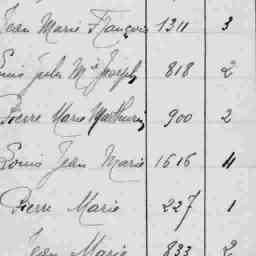 Jean Marie François 1311 3
Louis Jules Mie Joseph 818 2
Pierre Marie Mathurin 900 2
Louis Jean Marie 1616 4
Pierre Marie 227 1
Jean Marie 833 2